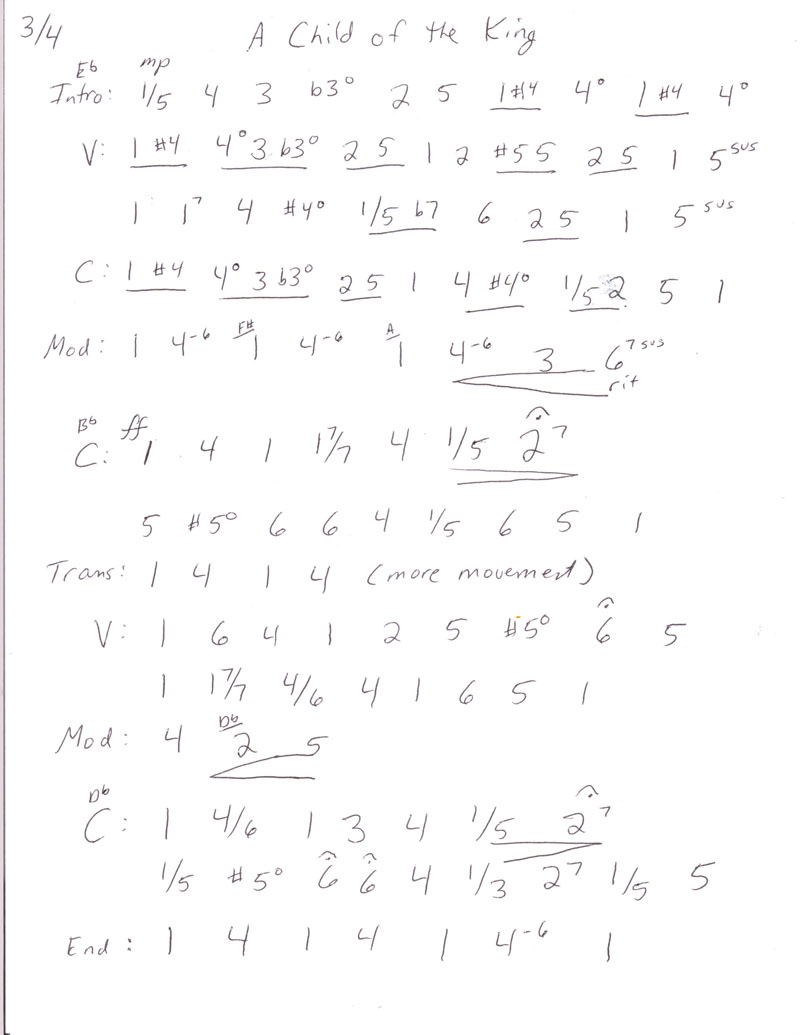 3/4 A Child of the King
Eb mp
Intro: 1/5 4 3 b3° 2 5 1 #4 4° 1 #4 4°
V: 1 #4 4° 3 b3° 2 5 1 2 #5 5 2 5 1 5sus
1 1⁷ 4 #4° 1/5 b7 6 2 5 1 5sus
C: 1 #4 4° 3 b3° 2 5 1 4 #4° 1/5 2 5 1
F# A
Mod: 1 4-6 1 4-6 1 4-6 3 6⁷sus
rit
Bb ff
C: 1 4 1 1⁷/7 4 1/5 2⁷
5 #5° 6 6 4 1/5 6 5 1
Trans: 1 4 1 4 (more movement)
V: 1 6 4 1 2 5 #5° 6 5
1 1⁷/7 4/6 4 1 6 5 1
Db
Mod: 4 2 5
Db
C: 1 4/6 1 3 4 1/5 2⁷
1/5 #5° 6 6 4 1/3 2⁷ 1/5 5
End: 1 4 1 4 1 4-6 1